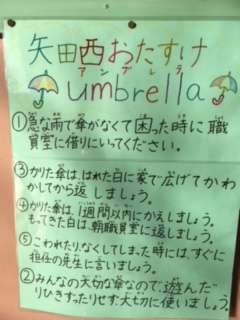 矢田西おたすけ
アンブレラ
umbrella
①急な雨で傘がなくて困った時に職
員室に借りにいってください。
③かりた傘は、はれた日に家で広げてかわ
かしてから返しましょう。
④かりた傘は、1週間以内にかえしましょう。
もってきた日は、朝職員室に返しましょう。
⑤こわれたり、なくしてしまった時には、すぐに
担任の先生に言いましょう。
②みんなの大切な傘なので、遊んだ
りひきずったりせず大切に使いましょう。